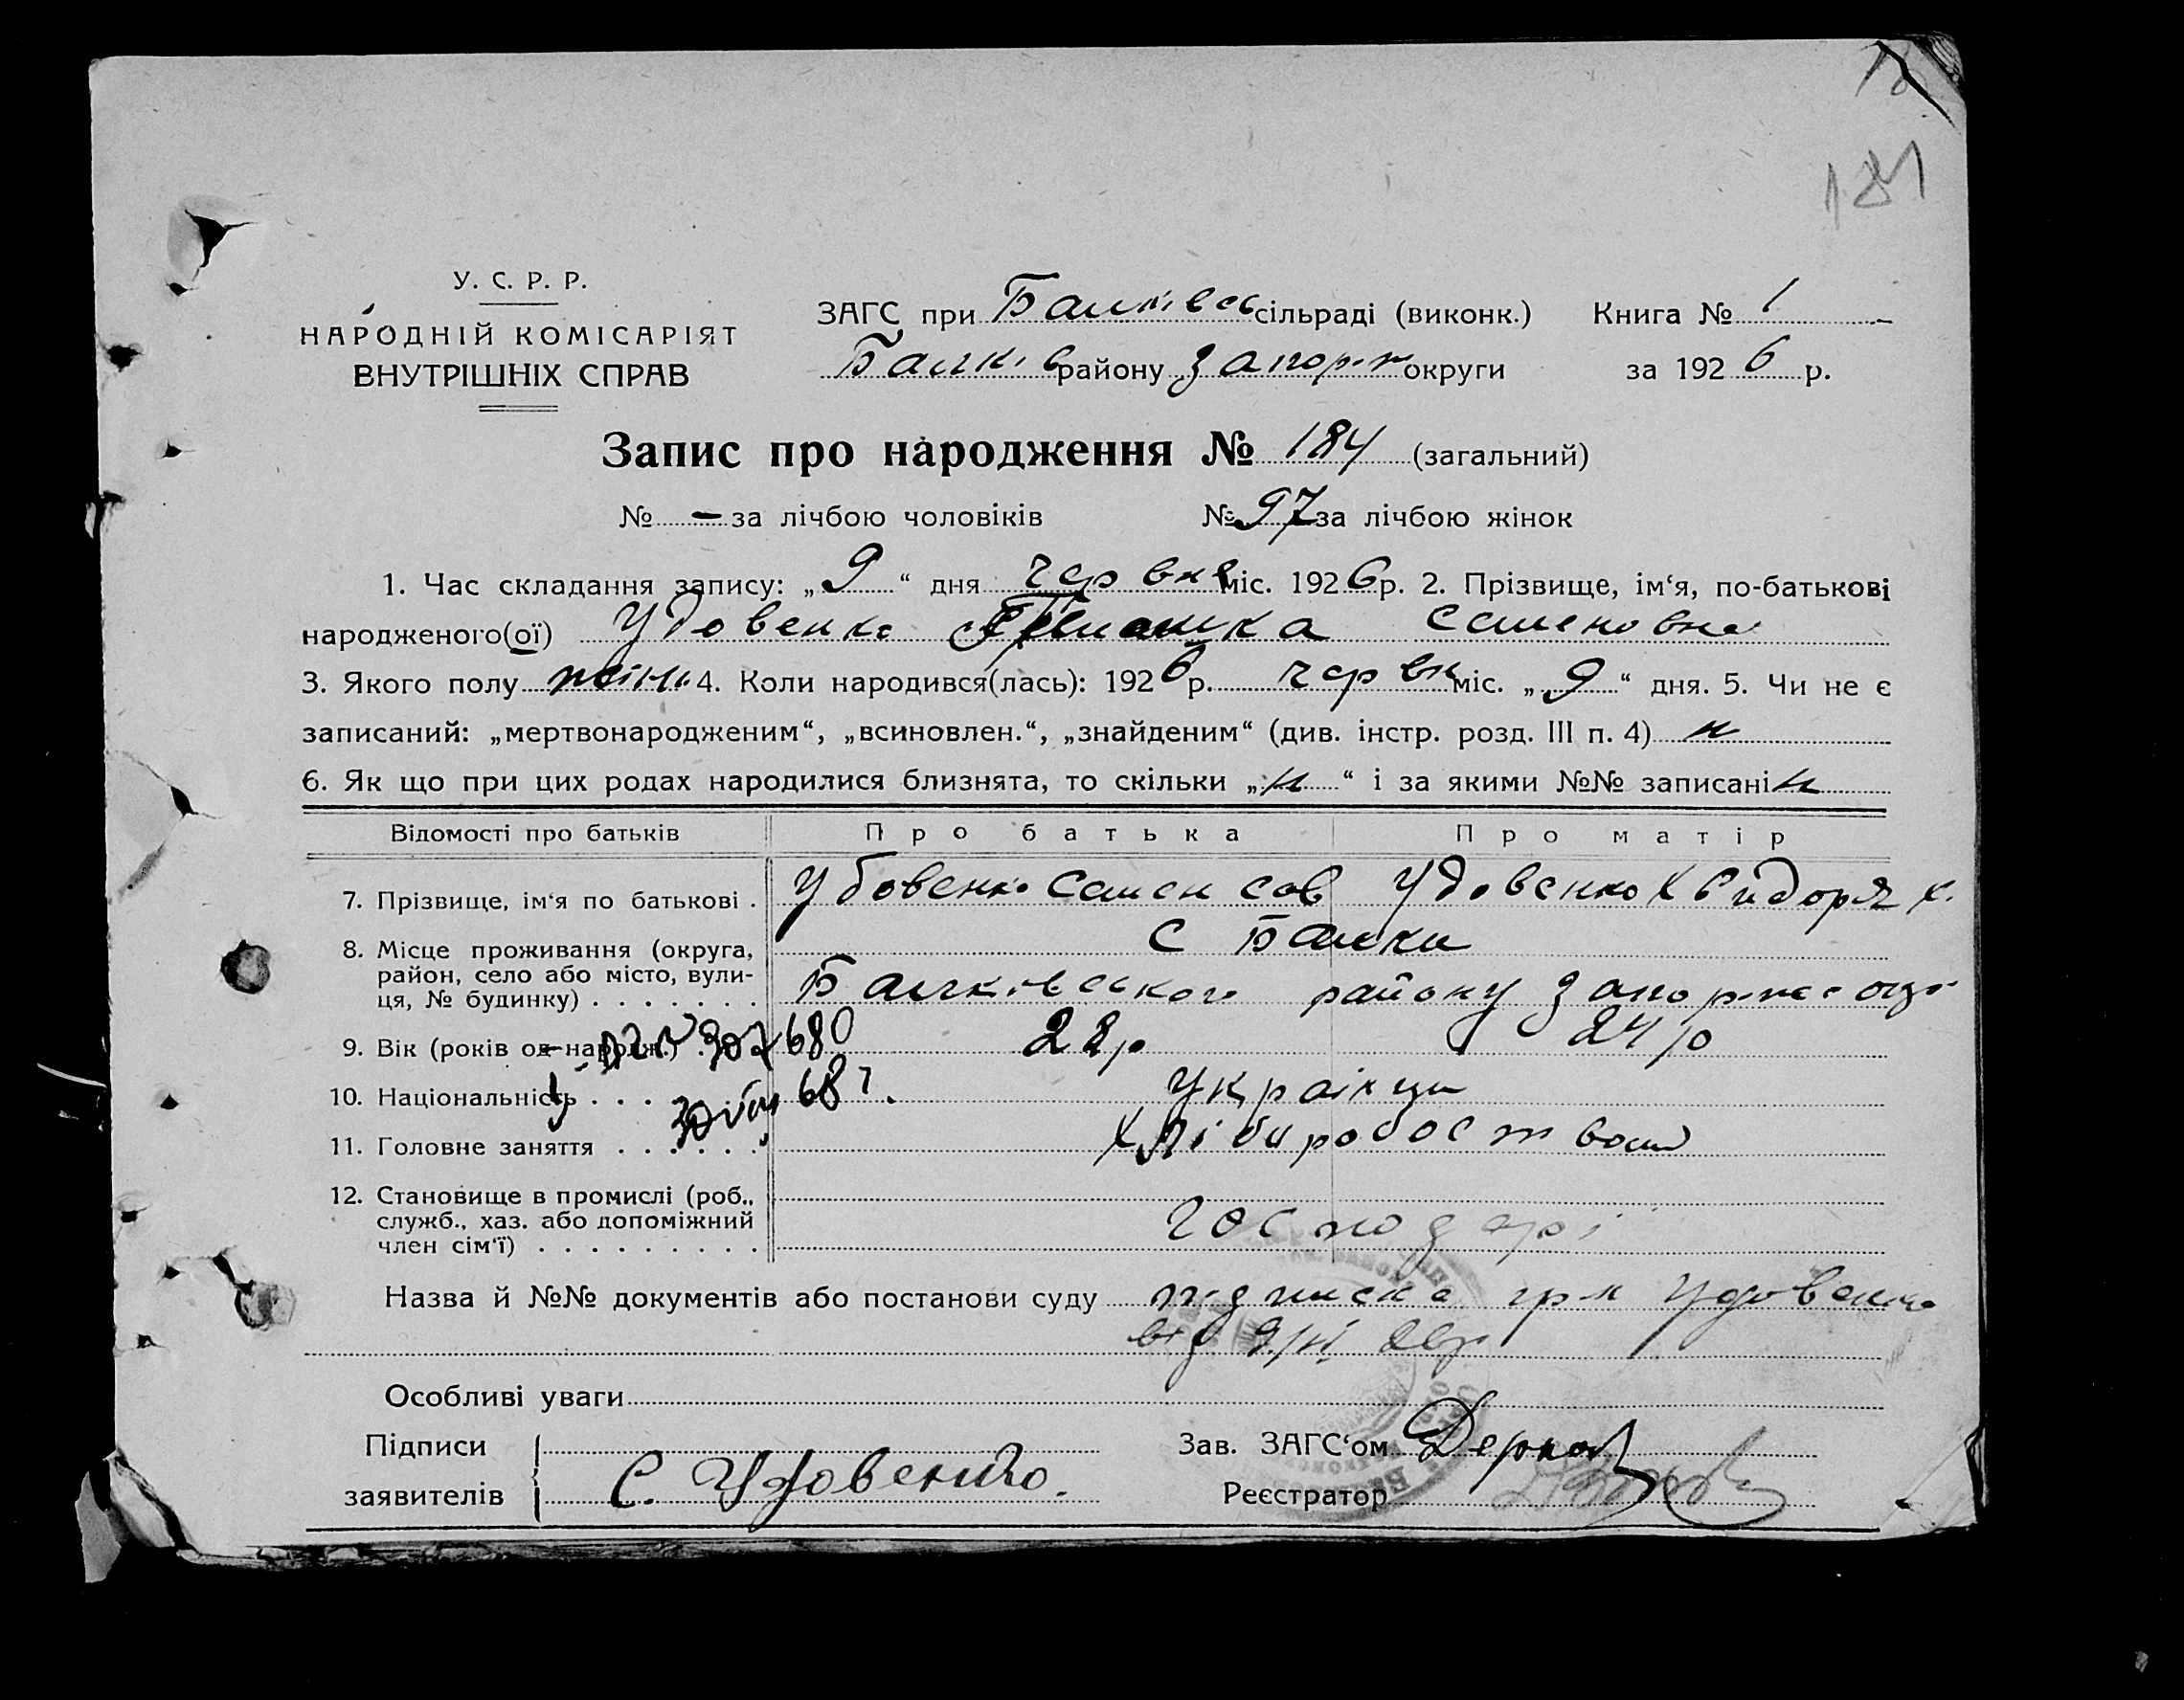 181
У. С. Р. Р.
НАРОДНІЙ КОМІСАРІЯТ
ВНУТРІШНІХ СПРАВ
ЗАГС при Балківсь сільраді (виконк.) Книга № 1
Балків району Запоріж округи за 1926 р.
Запис про народження № 184 (загальний)
№ — за лічбою чоловіків № 97 за лічбою жінок
1. Час складання запису: „9“ дня червня міс. 1926 р. 2. Прізвище, ім‘я, по-батькові
народженого(ої) Удовенко Семеновна
3. Якого полу жіно. 4. Коли народився(лась): 1926 р. червн міс. „9“ дня. 5. Чи не є
записаний: „мертвонародженим“, „всиновлен.“, „знайденим“ (див. інстр. розд. III п. 4) н
6. Як що при цих родах народилися близнята, то скільки „н“ і за якими №№ записані н
Відомості про батьків Про батька Про матір
7. Прізвище, ім‘я по батькові . Удовенко Семен Сав Удовенко Х.
8. Місце проживання (округа, район, село або місто, вулиця, № будинку) . . . . . . . с Балки
Балківського району Запоріж
9. Вік (років од народж.) . 680 22р 24р
10. Національність . . . 687. Українци
11. Головне заняття . . . . . . Хліборобством
12. Становище в промислі (роб., служб., хаз. або допоміжний член сім‘ї) . . . . . . . . . господарі
Назва й №№ документів або постанови суду підписка гр-н Удовенко
від 9/VI 26р
Особливі уваги
Підписи заявителів С. Удовенко.
Зав. ЗАГС‘ом
Реєстратор